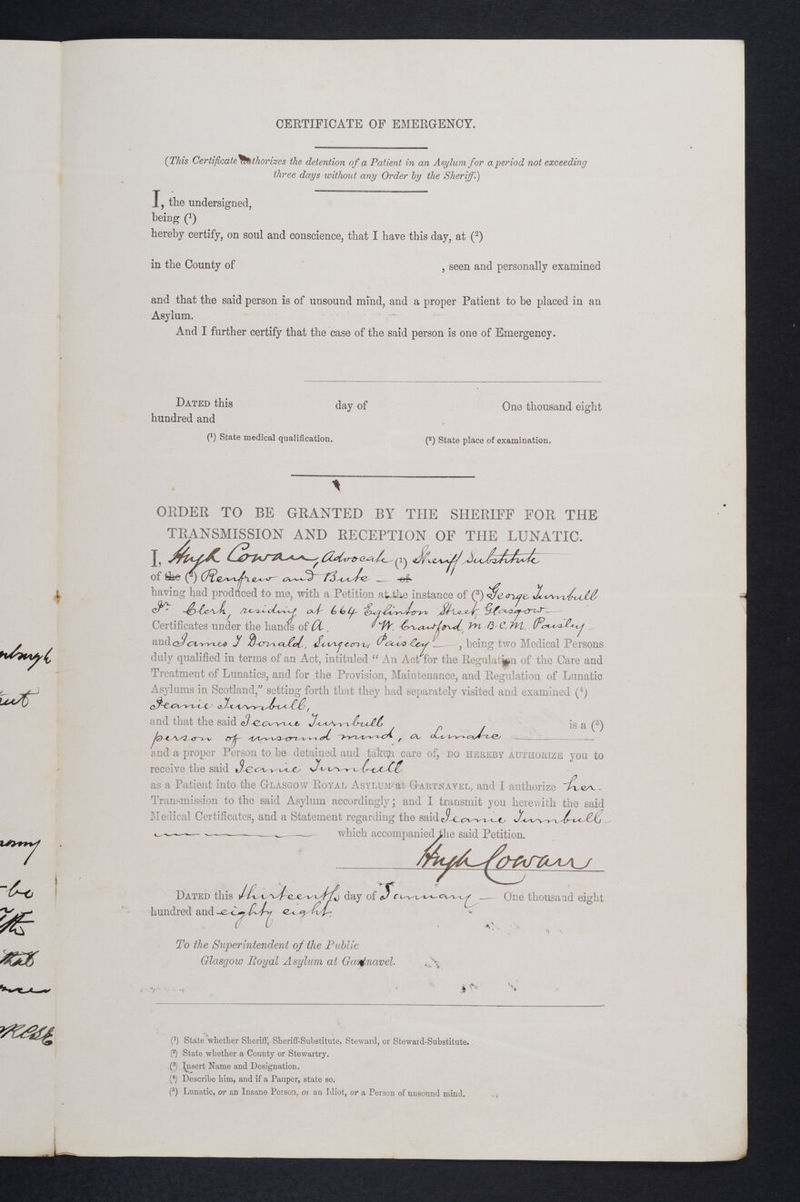 CERTIFICATE OF EMERGENCY.
(This Certificate authorizes the detention of a Patient in an Asylum for a period not exceeding
three days without any Order by the Sheriff.)
I, the undersigned,
being (¹)
hereby certify, on soul and conscience, that I have this day, at (²)
in the County of , seen and personally examined
and that the said person is of unsound mind, and a proper Patient to be placed in an
Asylum.
And I further certify that the case of the said person is one of Emergency.
DATED this day of One thousand eight
hundred and
(¹) State medical qualification. (²) State place of examination.
ORDER TO BE GRANTED BY THE SHERIFF FOR THE
TRANSMISSION AND RECEPTION OF THE LUNATIC.
I, Hugh Cowan, Advocate (¹) Sheriff Substitute
of the (²) Renfrew and Bute — of
having had produced to me, with a Petition at the instance of (³) George Turnbull
Jr. Clerk, residing at 664 Eglinton Street Glasgow —
Certificates under the hands of A. W. Crawford, M.B.C.M. Paisley —
and James J Donald, Surgeon, Paisley — , being two Medical Persons
duly qualified in terms of an Act, intituled “ An Act for the Regulation of the Care and
Treatment of Lunatics, and for the Provision, Maintenance, and Regulation of Lunatic
Asylums in Scotland,” setting forth that they had separately visited and examined (⁴)
Jeanie Turnbull,
and that the said Jeanie Turnbull is a (⁵)
person of unsound mind, a lunatic —
and a proper Person to be detained and taken care of, DO HEREBY AUTHORIZE you to
receive the said Jeanie Turnbull
as a Patient into the GLASGOW ROYAL ASYLUM at GARTNAVEL, and I authorize her
Transmission to the said Asylum accordingly; and I transmit you herewith the said
Medical Certificates, and a Statement regarding the said Jeanie Turnbull —
— which accompanied the said Petition.
Hugh Cowan
DATED this thirteenth day of January — One thousand eight
hundred and eighty eight.
To the Superintendent of the Public
Glasgow Royal Asylum at Gartnavel.
(¹) State whether Sheriff, Sheriff-Substitute, Steward, or Steward-Substitute.
(²) State whether a County or Stewartry.
(³) Insert Name and Designation.
(⁴) Describe him, and if a Pauper, state so.
(⁵) Lunatic, or an Insane Person, or an Idiot, or a Person of unsound mind.